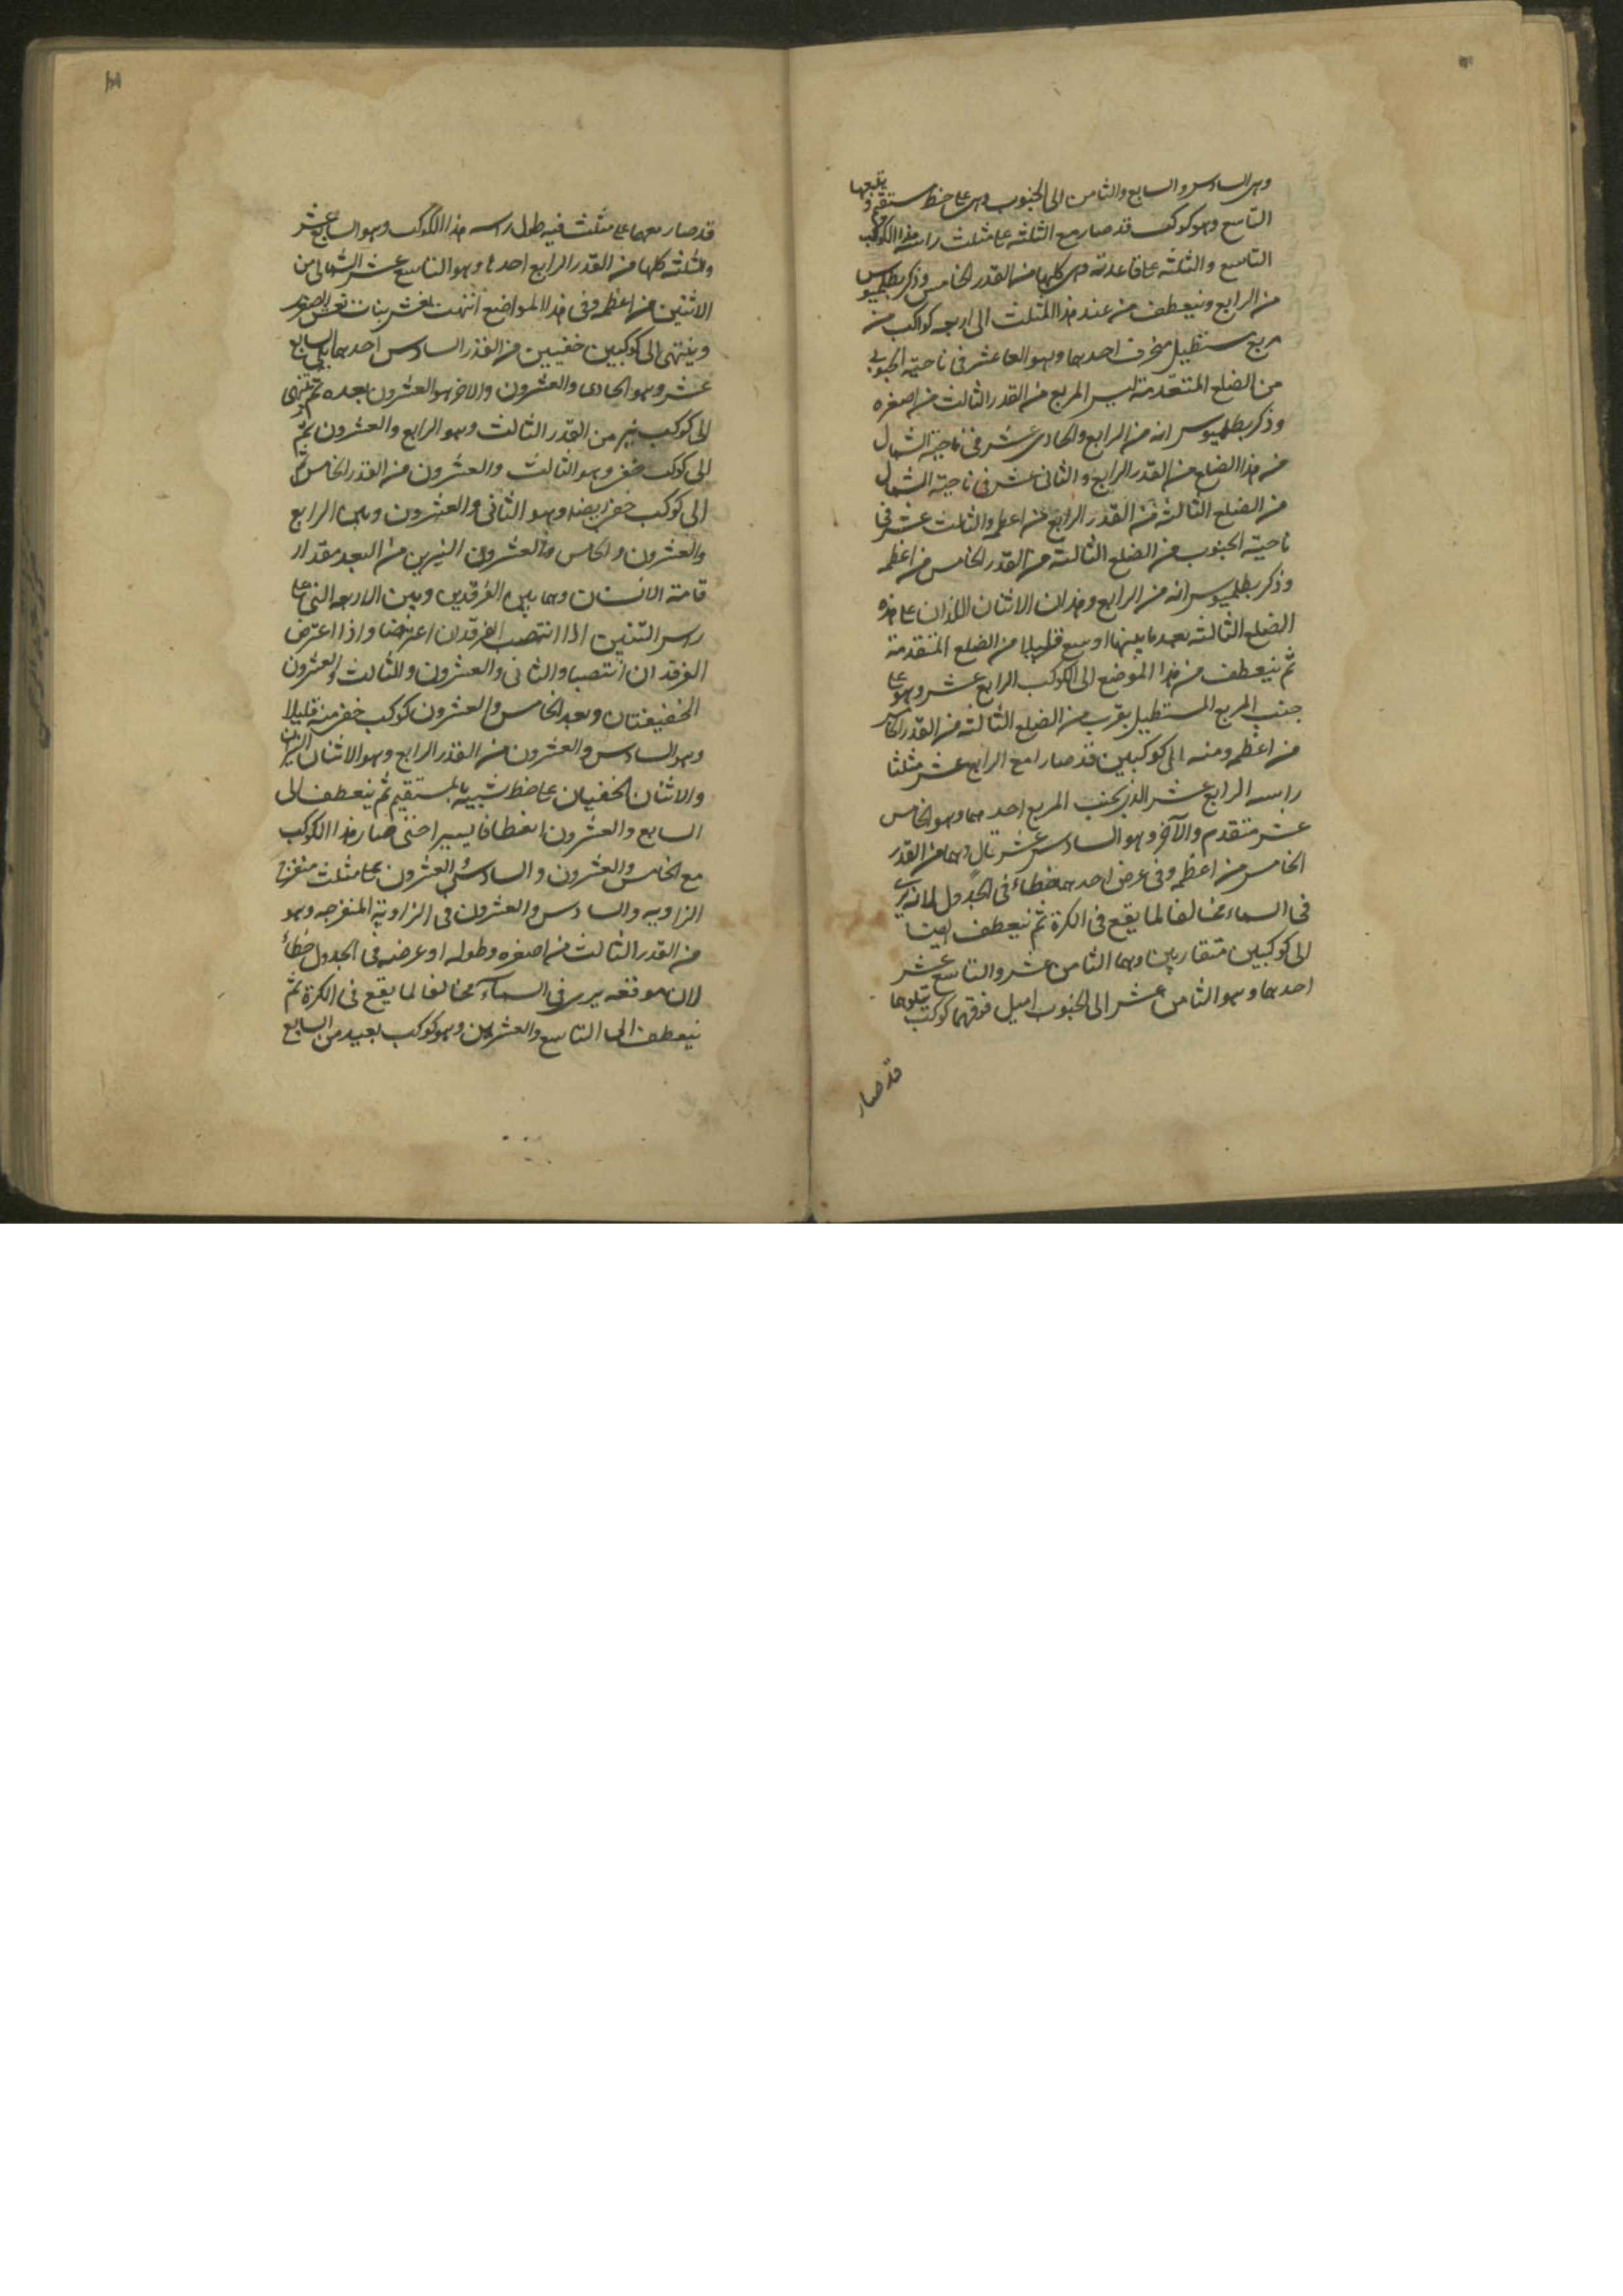 وهى السادس والسابع والثامن الى الجنوب وهى على خط مستقيم ويتبعها
التاسع وهو كوكب قد صار مع الثلثه على مثلث راسه هذا الكوكب
التاسع والثلثه على قاعدته وهى كلها من القدر الخامس وذكر بطلميوس
من الرابع وينعطف من عند هذا المثلث الى اربعه كواكب من
مربع مستطيل منحرف احدهما وهو العاشر فى ناحيته الجنوبى
من الضلع المتقدمة ليس المربع من القدر الثالث من اصغره
وذكر بطلميوس انه من الرابع والحادى عشر فى ناحيته الشمال
من هذا الضلع من القدر الرابع والثانى عشر فى ناحيته الشمال
من الضلع الثالثه من القدر الرابع من اعظمه والثالث عشر فى
ناحيته الجنوب من الضلع الثالثة من القدر الخامس من اعظمه
وذكر بطلميوس انه من الرابع وهذان الاثنان اللذان على هذه
الضلع الثالثه بعد ما بينهما اوسع قليلا من الضلع المتقدمة
ثم ينعطف من هذا الموضع الى الكوكب الرابع عشر وهو على
جنب المربع المستطيل بقرب من الضلع الثالثه من القدر الخامس
من اعظمه ومنه الى كوكبين قد صارا مع الرابع عشر مثلثا
راسه الرابع عشر الذى بجنب المربع احدهما وهو الخامس
عشر متقدم والآخر وهو السادس عشر تال وهما من القدر
الخامس من اعظمه وفى عرض احدهما خطاء فى الجدول لانه يرى
فى السماء مخالفا لما يقع فى الكرة ثم ينعطف ايضا
الى كوكبين متقاربين وهما الثامن عشر والتاسع عشر
احدهما وهو الثامن عشر الى الجنوب اميل فوقهما كوكب يتلوهما
قد صار
قد صار معهما على مثلث فيه طول راسه هذا الكوكب وهو السابع عشر
والثلثه كلها من القدر الرابع احدها وهو التاسع عشر الشمالى من
الاثنين من اعظمه وفى هذا المواضع انتهت نعش بنات نعش الصغرى
وينتهى الى كوكبين خفيين من القدر السادس احدهما يلى السابع
عشر وهو الحادى والعشرون والاخر هو العشرون بعده ثم ينتهى
الى كوكب نير من القدر الثالث وهو الرابع والعشرون ثم
الى كوكب خفى وهو الثالث والعشرون من القدر الخامس ثم
الى كوكب خفى ايضا وهو الثانى والعشرون وبين الرابع
والعشرون والخامس والعشرون النيرين من البعد مقدار
قامة الانسان وهما بين الفرقدين وبين الاربعه التى على
راس التنين اذا انتصب الفرقدان اعترضا واذا اعترض
الفرقدان انتصبا والثانى والعشرون والثالث والعشرون
الخفيفتان وبعد الخامس والعشرون كوكب خفى منه قليلا
وهو السادس والعشرون من القدر الرابع وهو الاثنان النيران
والاثنان الخفيان على خط شبيه بالمستقيم ثم ينعطف الى
السابع والعشرون انعطافا يسيرا حتى صار هذا الكوكب
مع الخامس والعشرون والسادس والعشرون على مثلث منفرج
الزاويه والسادس والعشرون فى الزاوية المنفرجه وهو
من القدر الثالث من اصغره وطوله او عرضه فى الجدول خطاء
لان موقعه يرى فى السمآء مخالفا لما يقع فى الكرة ثم
ينعطف الى التاسع والعشرون وهو كوكب بعيد من السابع